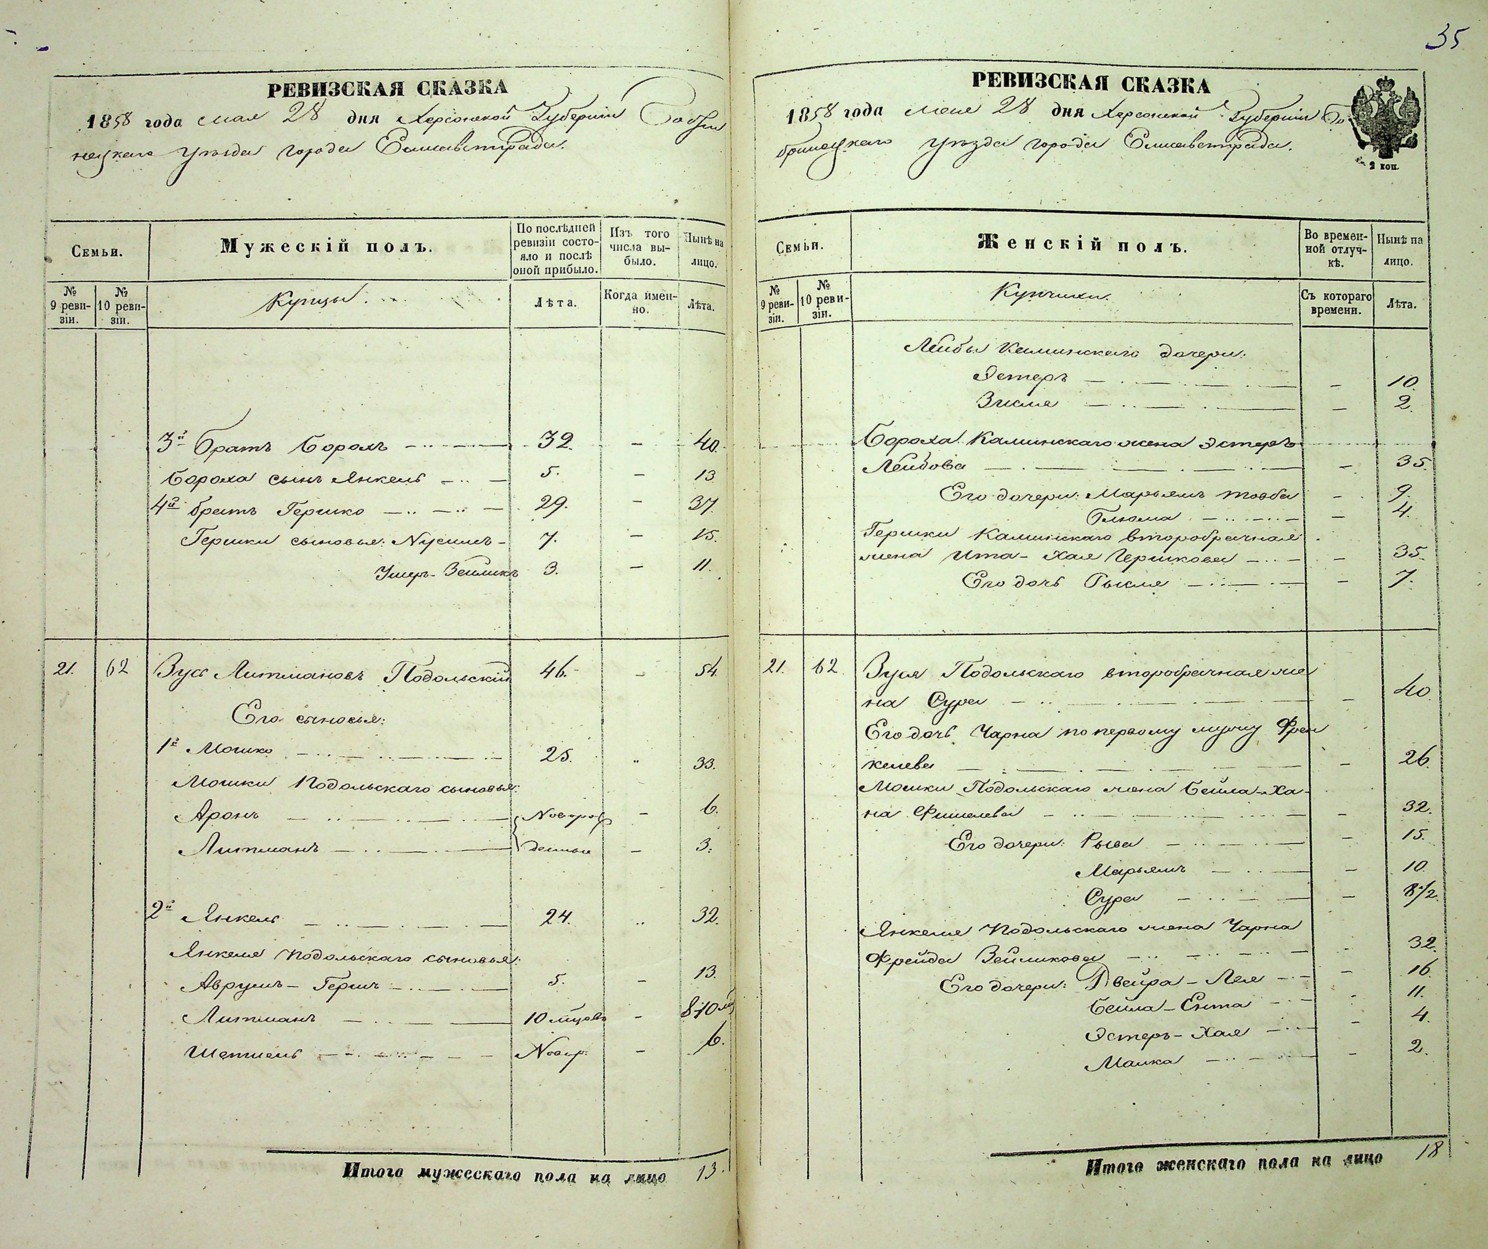 35
РЕВИЗСКАЯ СКАЗКА
1858 года мая 28 дня Херсонской Губернiи Бобри
нецкаго уѣзда города Елисаветграда.
Семьи.
Мужескiй полъ.
По послѣдней ревизiи состо-
яло и послѣ оной прибыло.
Изъ того числа вы-
было.
Нынѣ на лицо.
№ 9 реви-
зiи.
№ 10 реви-
зiи.
Купцы.
Лѣта.
Когда имен-
но.
Лѣта.
3й Братъ Борохъ 32. — 40.
Бороха сынъ Янкель 5. — 13
4й братъ Гершко 29. — 37.
Гершки сыновья: Нусимъ 7. — 15.
Ушеръ-Зейликъ 3. — 11.
21. 62 Зусь Литмановъ Подольскiй 46. — 54
Его сыновья:
1й Мошко 25. 33.
Мошки Подольскаго сыновья:
Аронъ Новорож — 6.
Литманъ денные — 3.
2й Янкель 24. 32.
Янкеля Подольскаго сыновья:
Аврумъ-Гершъ 5. — 13.
Литманъ 10 мцовъ — 8-10 мц
Шепшель Новор. — 6.
Итого мужескаго пола на лицо 13.
РЕВИЗСКАЯ СКАЗКА
1858 года мая 28 дня Херсонской Губернiи Бо-
бринецкаго уѣзда города Елисаветграда.
2 коп.
Семьи.
Женскiй полъ.
Во времен-
ной отлуч-
кѣ.
Нынѣ на лицо.
№ 9 реви-
зiи.
№ 10 реви-
зiи.
Купчихи.
Съ котораго времени.
Лѣта.
Лейбы Каминскаго дочери:
Эстеръ — 10.
Зисля — 2.
Бороха Каминскаго жена Эстеръ
Лейбова — 35.
Его дочери: Марьямъ Товба — 9.
Блюма — 4.
Гершки Каминскаго второбрачная
жена Ита-Хая Гершкова — 35.
Его дочь Рысля — 7.
21. 62 Зуся Подольскаго второбрачная же
на Сура — 40
Его дочь Чарна по первому мужу Френ
келева — 26
Мошки Подольскаго жена Бейла-Ха-
на Фишелева — 32.
Его дочери: Рыва — 15.
Марьямъ — 10.
Сура — 8 1/2.
Янкеля Подольскаго жена Чарна
Фрейда Зейликова 32.
Его дочери: Двейра-Лея — 16
Бейла-Ента — 11.
Эстеръ-Хая — 4.
Малка — 2.
Итого женскаго пола на лицо 18